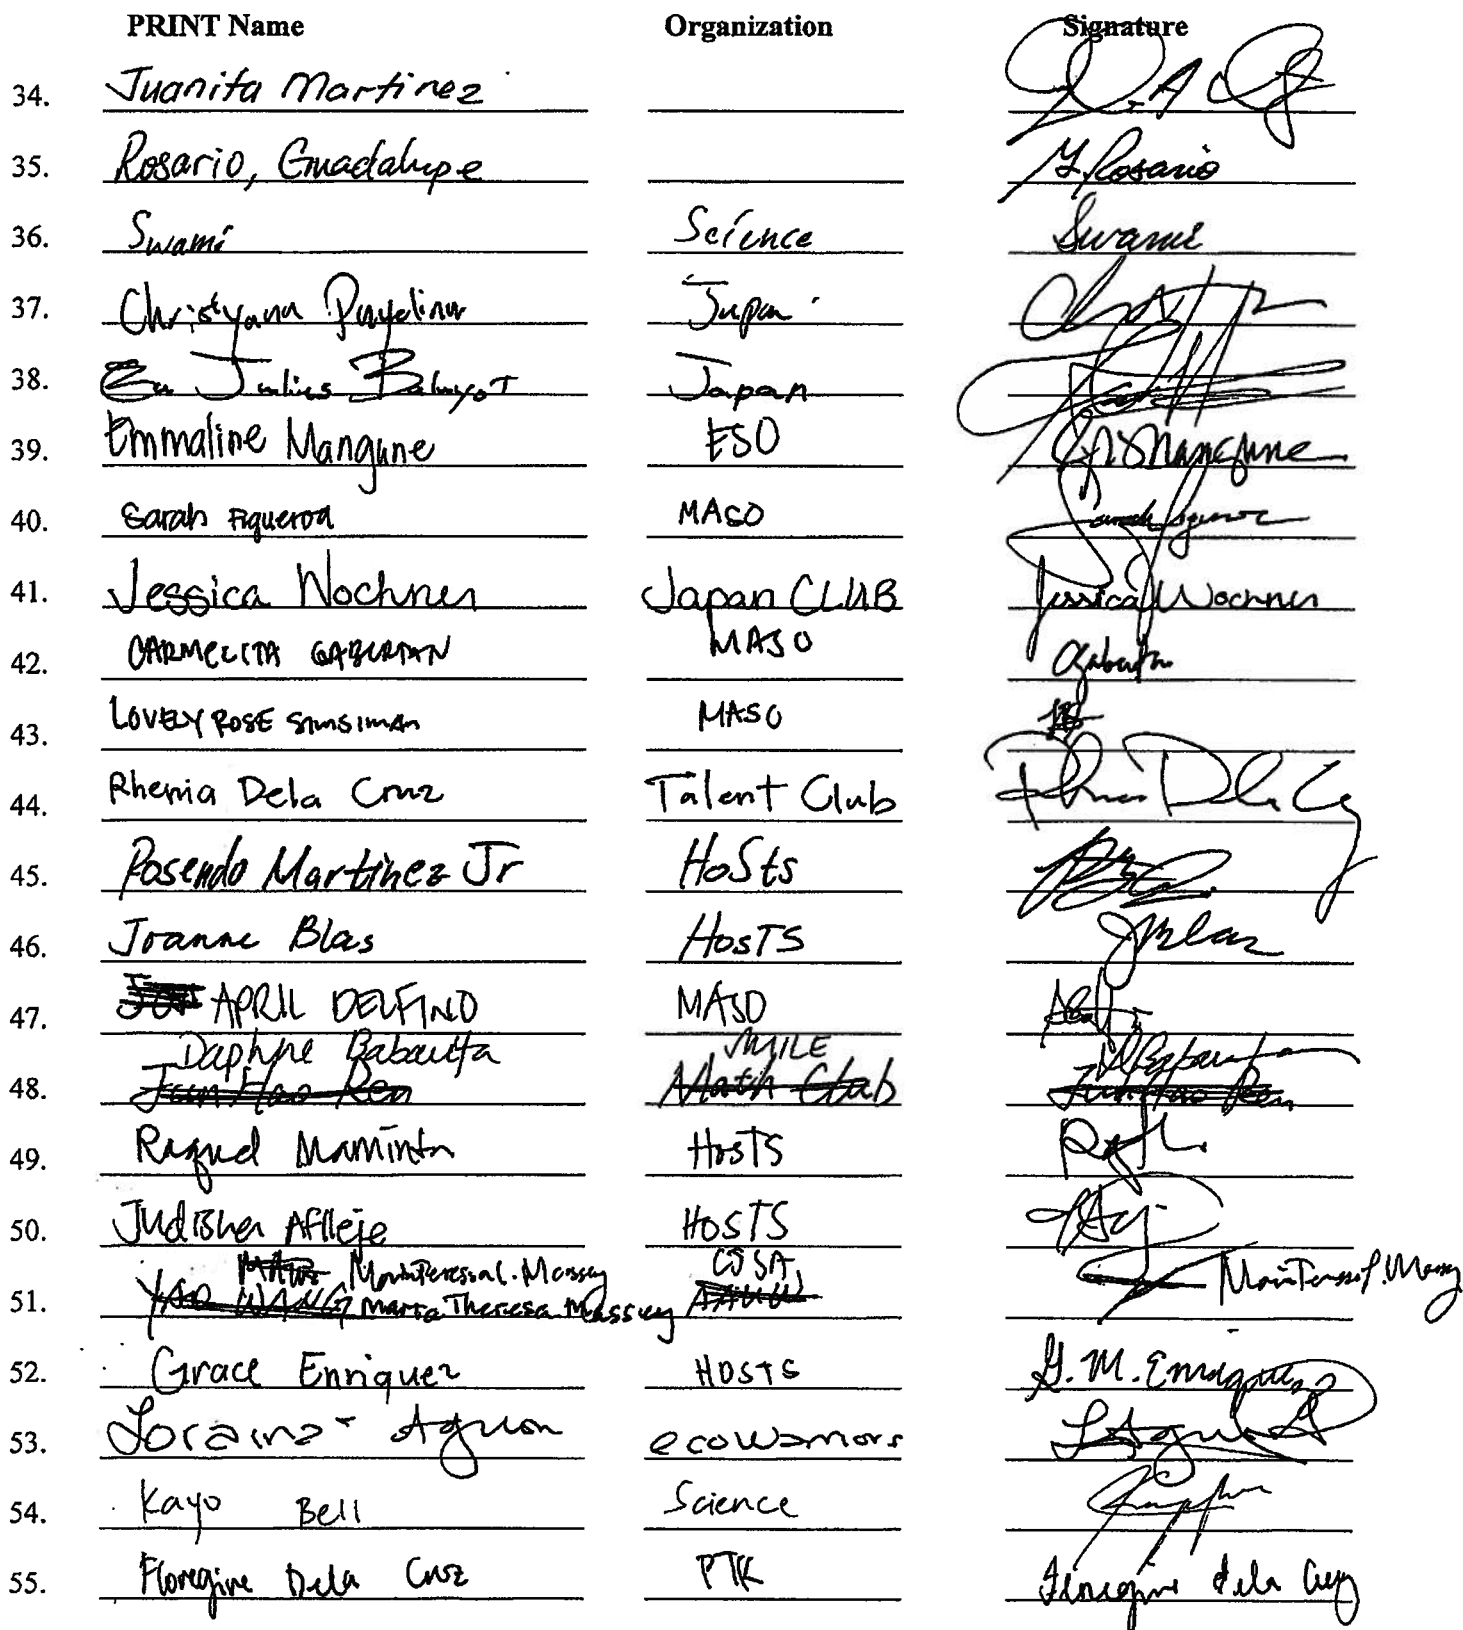 PRINT Name Organization Signature
34. Juanita Martinez
35. Rosario, Guadalupe G. Rosario
36. Swami Science Swami
37. Christyana Japan
38. Julius Baluyot Japan
39. Emmaline Mangune ESO Mangune
40. Sarah Figueroa MASO
41. Jessica Wochner Japan CLUB Jessica Wochner
42. CARMELITA GABURTAN MASO
43. LOVELY ROSE SIMSIMAN MASO
44. Rhenia Dela Cruz Talent Club Dela Cruz
45. Rosendo Martinez Jr HoSts
46. Joanne Blas HosTS JBlas
47. APRIL DELFINO MASO
Daphne Babauta SMILE
48. Jun Hao Ren Math Club Jun Hao Ren
49. Raquel Maminta HosTS
50. Judisher Aflleje HOSTS
Massey
51. YAO WANG Maria Theresa Massey
52. Grace Enriquez HOSTS G.M. Enriquez
53. Loraine Aguon ecowarriors
54. Kayo Bell Science
55. Floregine Dela Cruz PTK Floregine dela Cruz